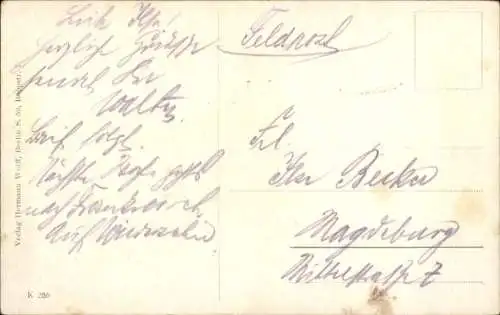 Liebe Ilse!
Herzliche Grüsse
sendet Dir
Walter
Brief folgt.
Nächste Woche geht's
nach Frankreich
Auf Wiedersehn
Feldpost
Frl.
Ilse Becker
Magdeburg
Mittelstraße 7
Verlag Hermann Wolff, Berlin S. 59,
K 286